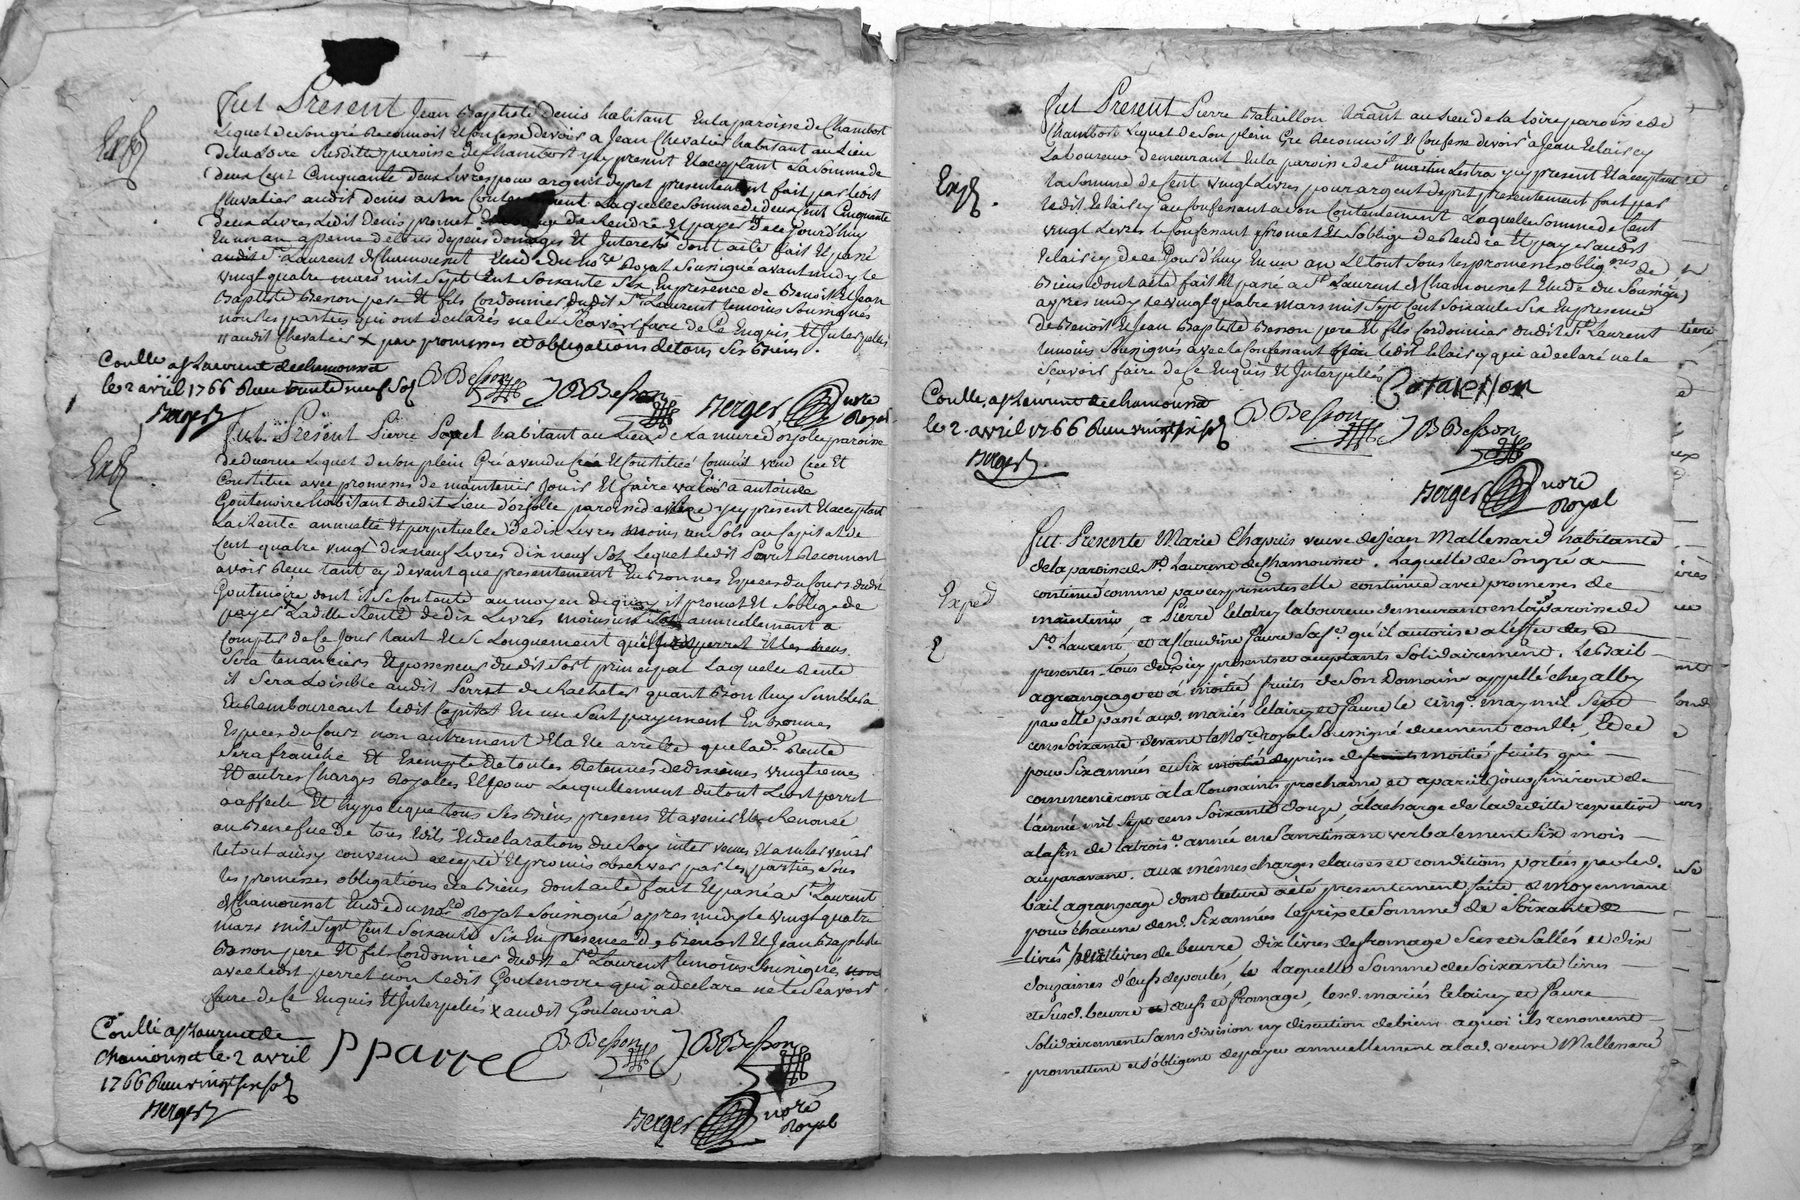 Expé
fut Present Jean Baptiste Denis habitant En la paroisse de Chambost
Lequel de Son gré Reconnoit Et Confesse devoir a Jean Chevalier habitant au Lieu
de la Loire Susditte paroisse de Chambost y cy present Et acceptant La Somme de
deux Cent Cinquante deux Livres pour argent de pret presentement fait par ledit
Chevalier audit Denis a son Contentement Laquelle Somme de deux Cent Cinquante
deux Livres Ledit Denis promet de Rendre Et payer de ce jourd'huy
En un an a peine de tous depens domages Et Interests dont acte fait Et passé
audit St Laurent de Chamousset Etude du nore Royal Soussigné avant midy le
vingt quatre mars mil Sept Cent Soixante Six En presence de Benoit Et Jean
Baptiste Besson pere Et fils Cordonnier dudit St Laurent temoins Soussignés
non les parties qui ont declarés ne le Scavoir faire de Ce Enquis Et Interpellés
audit Chevalier x par promesses et obligations de tous Ses Biens.
Conllé a St Laurent de chamousset
le 2 avril 1766 Reçu trente neuf Sols
Berger
B Besson
J B Besson
Berger nore
Royal
Expé
fut Present Pierre habitant au Lieu de La mure d'ozolle paroisse
de Lequel de Son plein Gré a vendu Cée Et Constitué Comme vend Cée Et
Constitue avec promesses de maintenir Jouir Et faire valoir a antoine
Goutenoire habitant dudit Lieu d'ozolle paroisse y cy present Et acceptant
La Rente annuelle Et perpetuelle De dix Livres moins un Sols au Capital de
Cent quatre vingt dix neuf Livres dix neuf Sol Lequel Ledit Perret Reconnoit
avoir Reçu tant cy devant que presentement En Bonnes Especes du Cours dudit
Goutenoire dont il Se Contente au moyen de quoy il promet Et Soblige de
payer Ladite Rente de dix Livres moins un Sol annuellement a
Compter de Ce Jour tant Et Si Longuement que perret Et les Siens
Sera tenanciers Et possesseur dudit Sort principal Laquelle Rente
il Sera Loisible audit Perret de Racheter quant Bon Luy Semblera
En Remboursant ledit Capital En un Seul payement En Bonnes
Especes du Cours non autrement Et a Ete arreté que lade Rente
Sera franche Et Exempte de toutes Retenues de dixiemes vingtiemes
Et autres Charges Royalles Et pour Lacquittement du tout Ledit perret
a affecté Et hypotequé tous Ses Biens presens Et avenir Et a Renoncé
au Benefice de tous Edits Et declarations du Roy intervenus Et a intervenir
le tout ainsy convenu accepté Et promis observer par les parties Sous
les promesses obligations de Biens dont acte fait Et passé a St Laurent
de Chamousset Etude du nore Royal Soussigné apres midy le vingt quatre
mars mil Sept Cent Soixante Six En presence de Benoit Et Jean Baptiste
Besson pere Et fils Cordonnier dudit St Laurent temoins Soussignés
avec ledit perret non ledit Goutenoire qui a declaré ne le Scavoir
faire de Ce Enquis Et Interpellés x audit Goutenoire
Conllé a St Laurent de
chamousset le 2 avril
1766 Reçu vingt six sols
Berger
P parret
B Besson
J B Besson
Berger nore
Royal
Expé
fut Present Pierre Bataillon habitant au Lieu de la Loire paroisse de
Chambost Lequel de Son plein Gré Reconnoit Et Confesse devoir a Jean Eclaircy
Laboureur demeurant En la paroisse de St martin Lestra y cy present Et acceptant
la Somme de Cent vingt Livres pour argent de pret presentement fait par
ledit Eclaircy au Confessant a Son Contentement Laquelle Somme de Cent
vingt Livres le Confessant promet Et Soblige de Rendre Et payer audit
Eclaircy de Ce Jourd'huy En un an Le tout Sous les promesses obligons de
Biens dont acte fait Et passé a St Laurent de Chamousset Etude du Soussigné
apres midy Le vingt quatre mars mil Sept Cent Soixante Six En presence
de Benoit Et Jean Baptiste Besson pere Et fils Cordonnier dudit St Laurent
temoins Soussignés avec le Confessant non ledit Eclaircy qui a declaré ne le
Scavoir faire de Ce Enquis Et Interpellés
Bataillon
Conllé a St Laurent de chamousset
le 2 avril 1766 Reçu vingt six sols
Berger
B Besson
J B Besson
Berger nore
Royal
Exped
fut Presente Marie Chapuis veuve de Jean Mallessard habitante
de la paroisse de St Laurent de Chamousset. Laquelle de Son gré a
continué comme par ces presentes elle continue avec promesses de
maintenir, a Pierre Eclaircy laboureur demeurant en lade paroisse de
St Laurent, et a Claudine Faure Sa fe qu'il autorise a l'effet des
presentes tous deux icy presents et acceptants Solidairement. Le Bail
a grangeage et a moitié fruits de Son Domaine appellé chez alby
par elle passé auxd. mariés Eclaircy et Faure le cinqe may mil Sept
cens Soixante devant le Nore royal Soussigné duement conllé, Et ce
pour Six années et Six prises de moitié fruits qui
commenceront à la Toussaints prochaine et a pareil jour finiront de
l'année mil Sept cens Soixante douze, à la charge de la deditte respective
a la fin de la troise année en S'avertissant verbalement Six mois
auparavant. aux mêmes charges clauses et conditions portées par led.
bail a grangeage dont lecture a été presentement faite, et moyennant
pour chacune desd. Six années le prix et Somme de Soixante
livres, livres de beurre, dix livres de fromage Secs et Sallés et dix
douzaines d'œufs de poules, laquelle Somme de Soixante livres
et Susd. beurre œufs et fromage, lesd. mariés Eclaircy et Faure
Solidairement Sans division ny discution de biens a quoi ils renoncent
promettent et S'obligent de payer annuellement a lad. veuve Mallessard